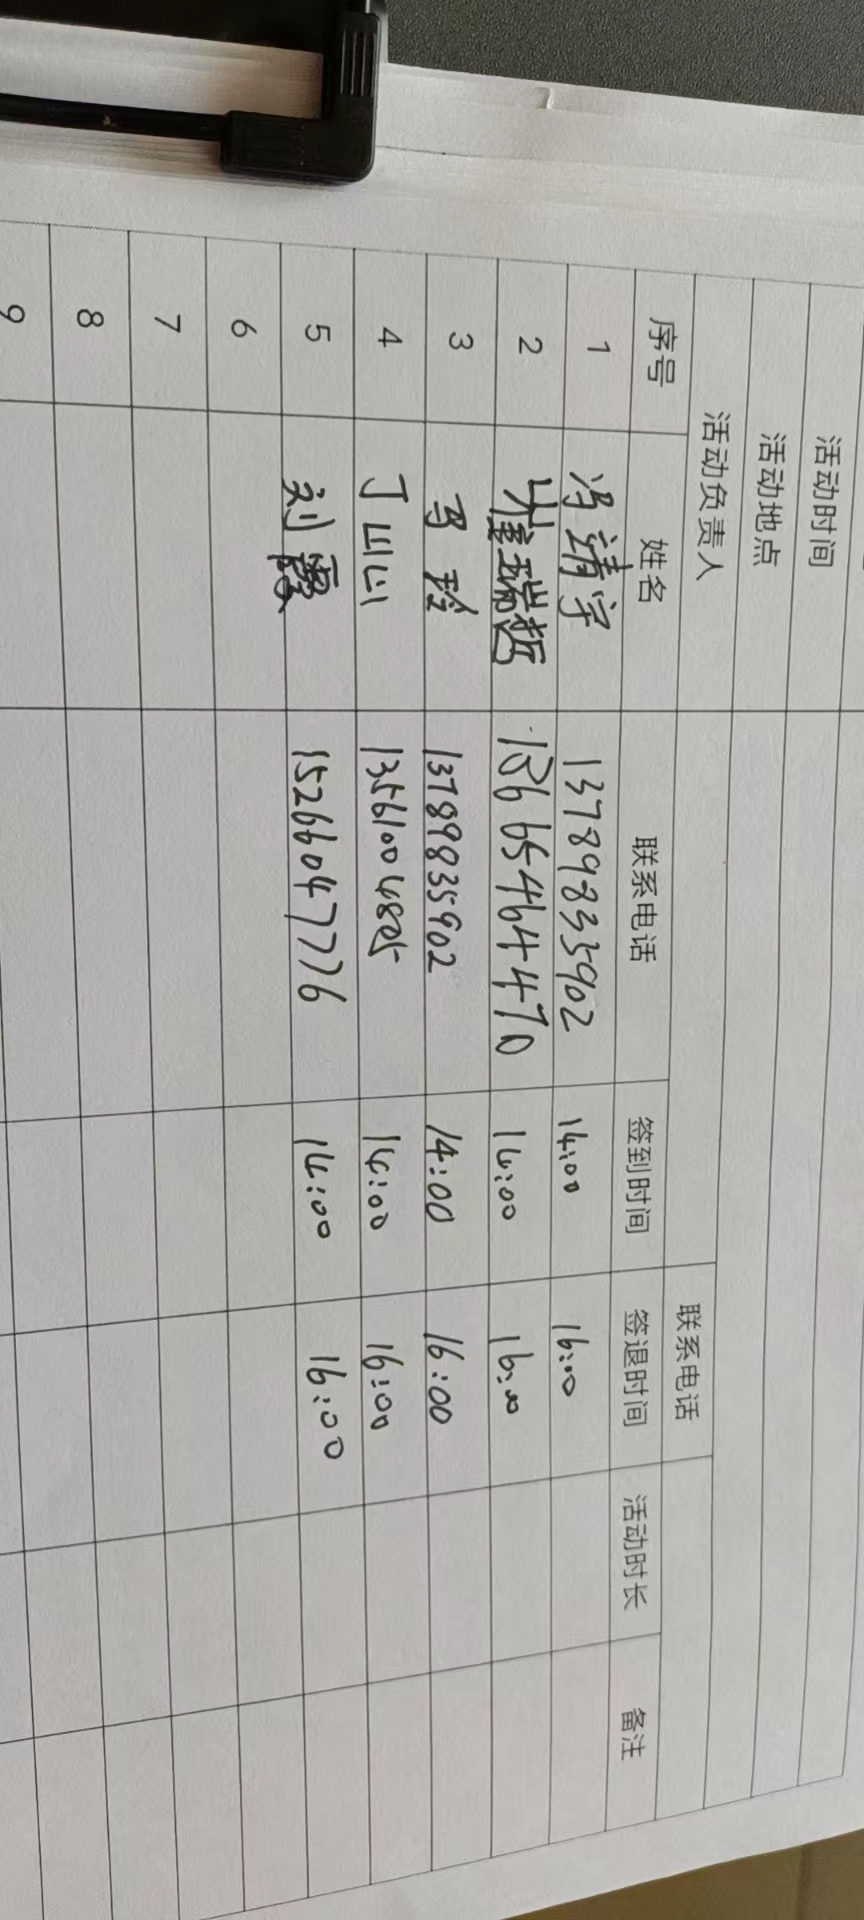 活动时间
活动地点
活动负责人 联系电话
序号 姓名 联系电话 签到时间 签退时间 活动时长 备注
1 冯靖宇 13789835902 14:00 16:00
2 崔瑞哲 15665464470 14:00 16:00
3 马玲 13789835902 14:00 16:00
4 丁山山 13561004805 14:00 16:00
5 刘霞 15266047776 14:00 16:00
6
7
8
9